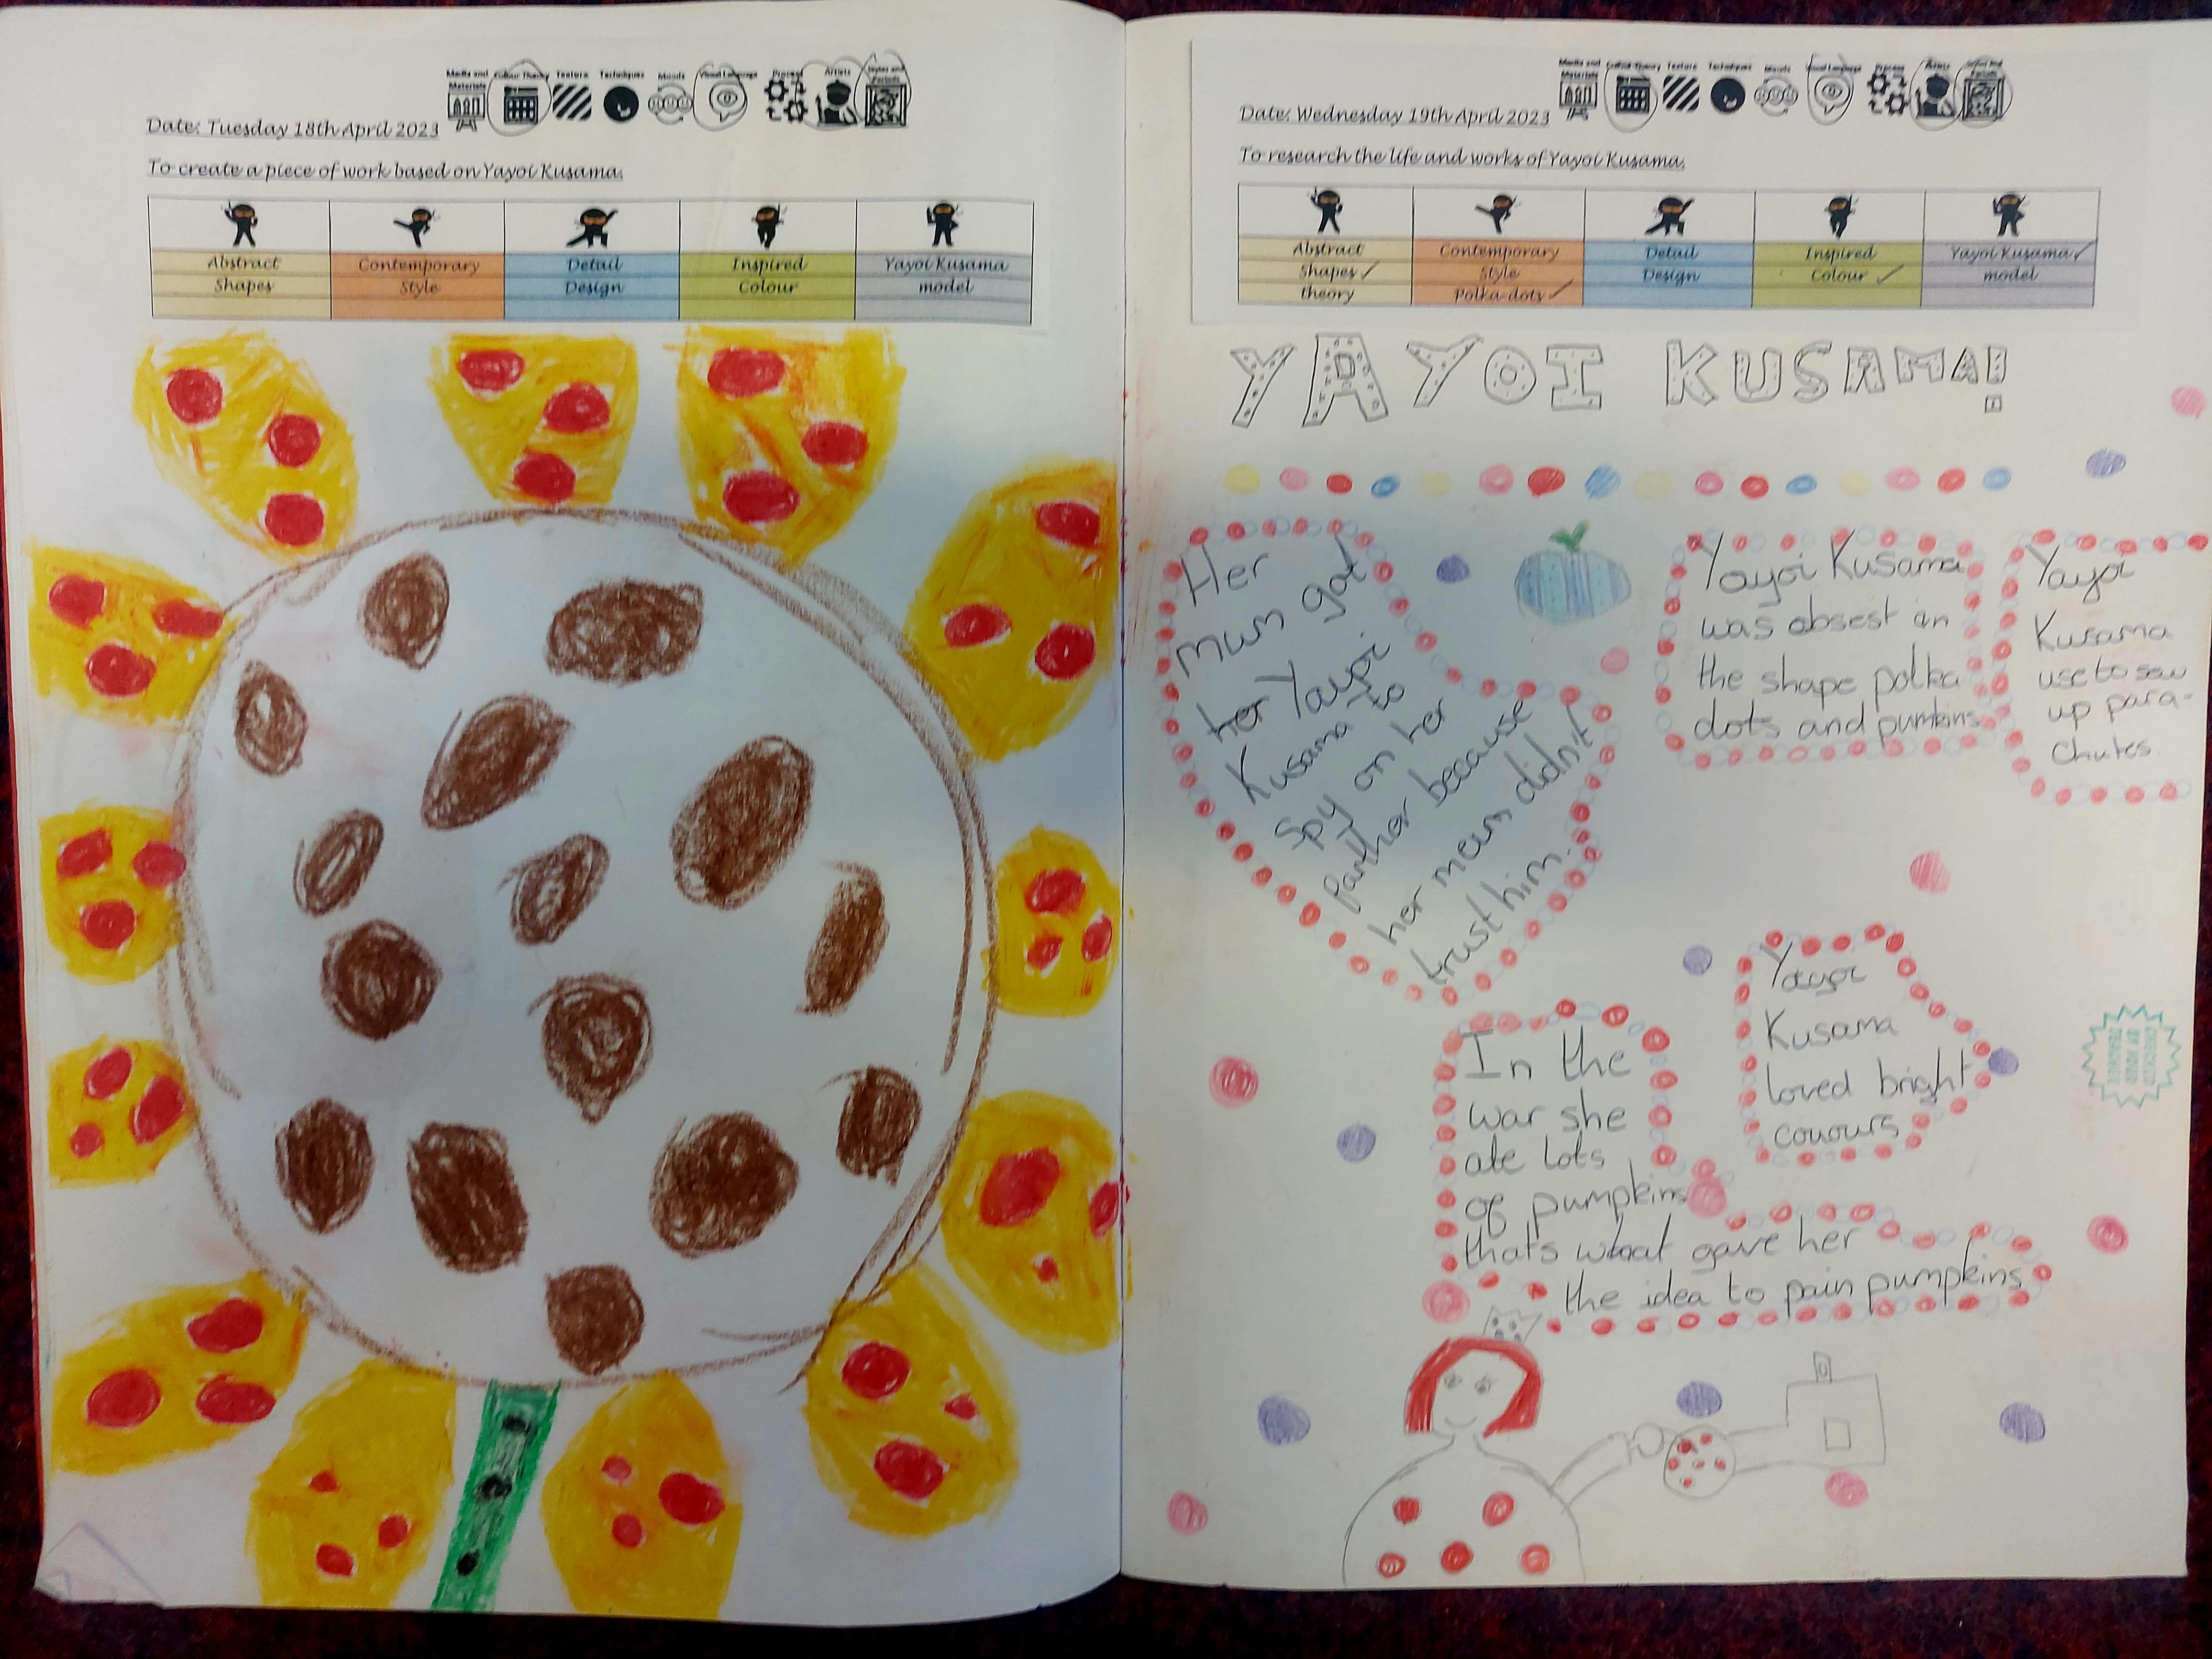 Media and Materials Colour Theory Texture Techniques Moods Visual Language Process Artists Styles and Periods
Date: Tuesday 18th April 2023
To create a piece of work based on Yayoi Kusama.
Abstract Contemporary Detail Inspired Yayoi Kusama
Shapes Style Design Colour model
Media and Materials Colour Theory Texture Techniques Moods Visual Language Process Artists Styles and Periods
Date: Wednesday 19th April 2023
To research the life and works of Yayoi Kusama.
Abstract Contemporary Detail Inspired Yayoi Kusama
Shapes Style Design Colour model
theory Polka-dots
YAYOI KUSAMA!
Her
mum got
her Yayoi
Kusama to
Spy on her
farther because
her mum didn't
trust him.
Yayoi Kusama
was absest on
the shape polka
dots and pumkins
Yayoi
Kusama
use to sew
up para-
chutes.
Yayoi
Kusama
loved bright
conours
In the
war she
ate lots
of pumpkins
thats what gave her
the idea to pain pumpkins